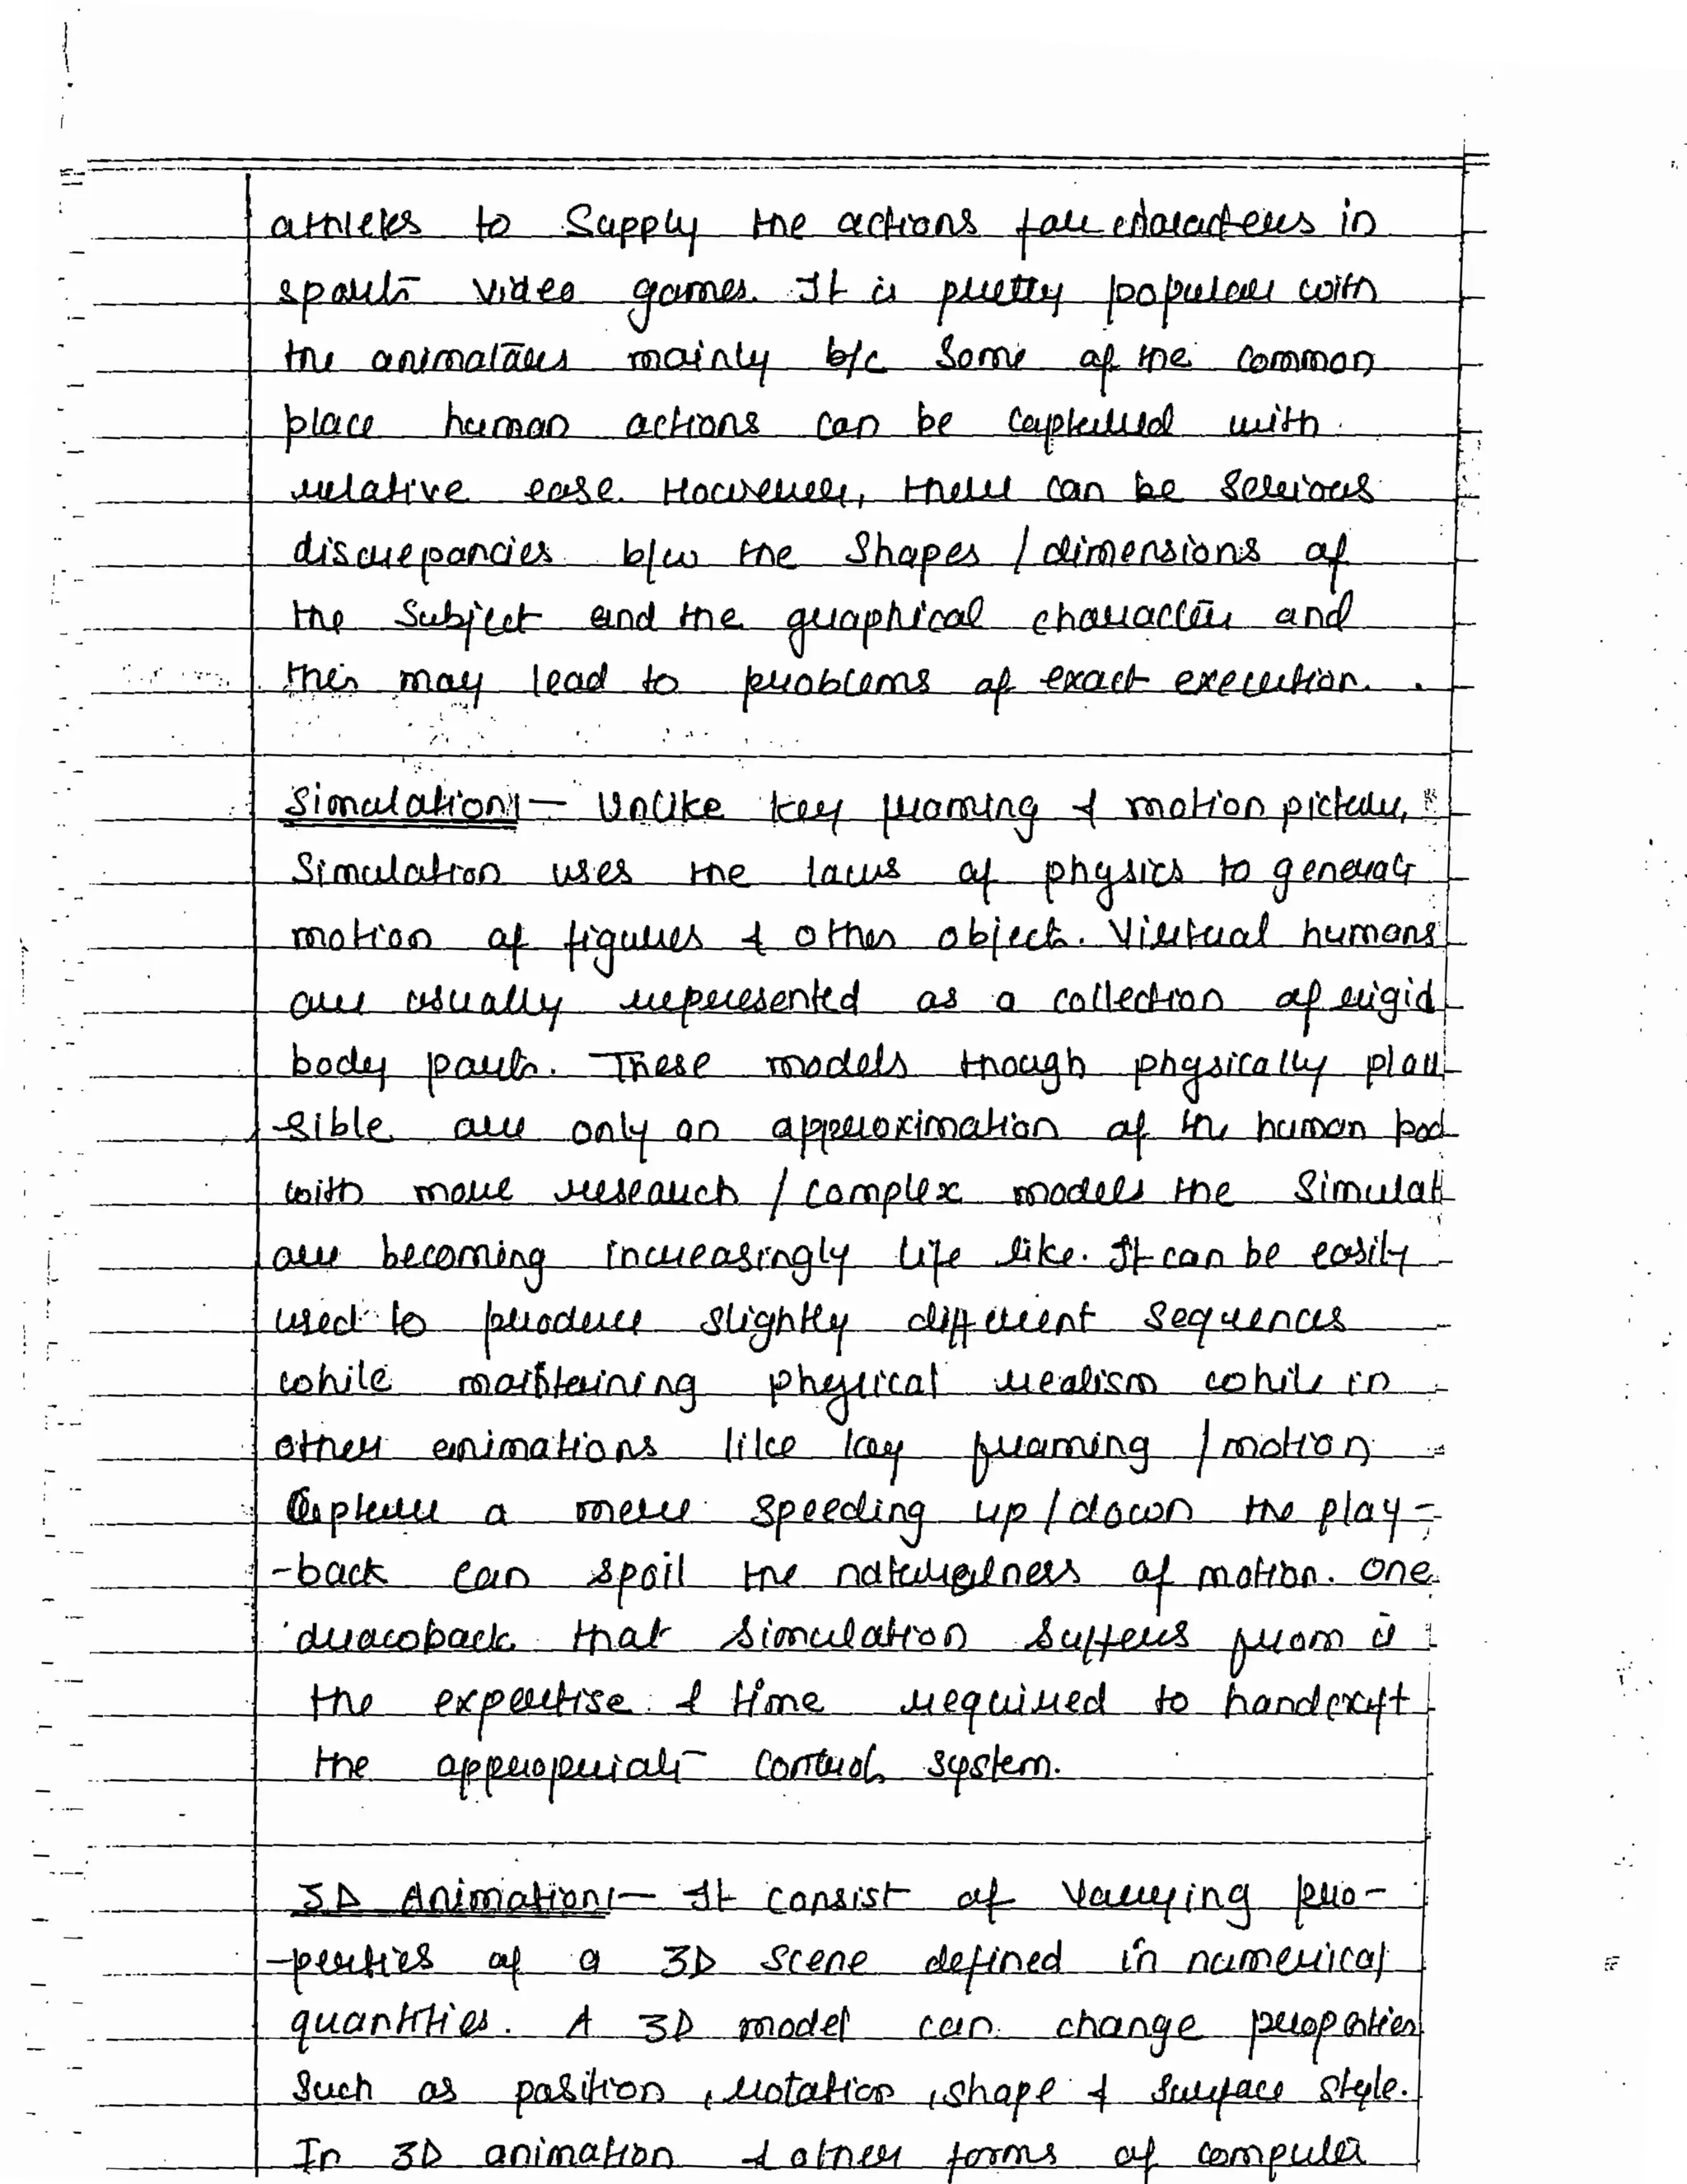 athletes to Supply the actions for characters in
sports video games. It is pretty popular with
the animators mainly b/c Some of the common
place human actions can be captured with
relative ease. However, there can be Serious
discrepancies b/w the Shapes / dimensions of
the Subject and the graphical character and
this may lead to problems of exact execution.
Simulation:- Unlike key framing & motion picture,
Simulation uses the laws of physics to generate
motion of figures & other objects. Virtual humans
are usually represented as a collection of rigid
body parts. These models though physically plau
-sible are only an approximation of the human bod
with more research / complex models the Simulati
are becoming increasingly life like. It can be easily
used to produce slightly different sequences
while maintaining physical realism while in
other animations like key framing / motion
Capture a mere speeding up / down the play-
-back can spoil the naturalness of motion. One
drawback that simulation suffers from is
the expertise & time required to handcraft
the appropriate control system.
3D Animation:- It consist of Varying pro-
-perties of a 3D Scene defined in numerical
quantities. A 3D model can change properties
Such as position, rotation, shape & surface style.
In 3D animation & other forms of computer